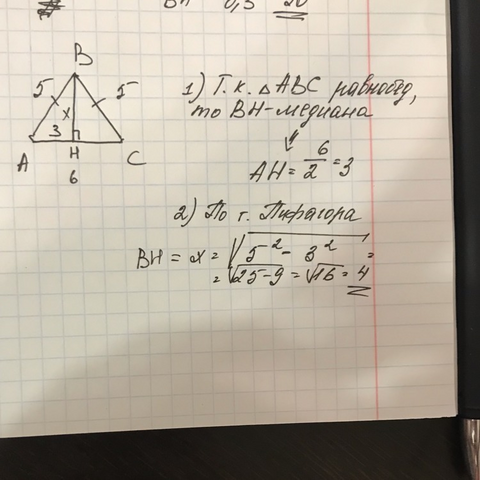 BH 0,5 20
B
5 5
x
3
A H C
6
1) Т.к. △ABC равнобед,
то BH-медиана
AH = 6/2 = 3
2) По т. Пифагора
BH = x = √5² - 3² =
= √25-9 = √16 = 4